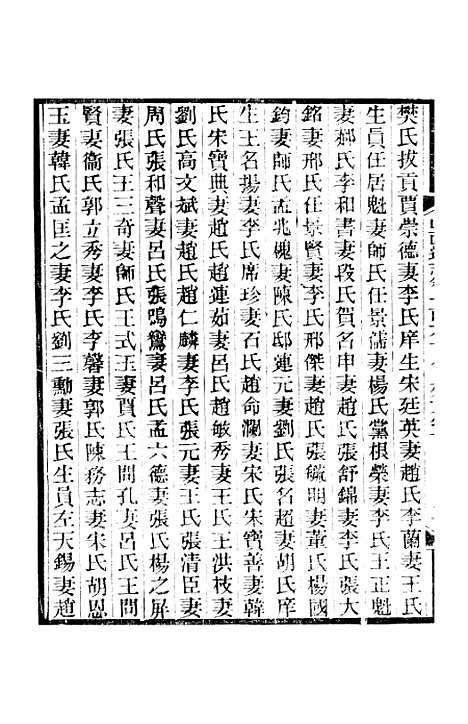 樊氏拔貢賈崇德妻李氏庠生宋廷英妻趙氏李蘭妻王氏
生員任居魁妻師氏任景儒妻楊氏黨根榮妻李氏王正魁
妻郝氏李和書妻段氏賀名申妻趙氏張舒錦妻李氏張大
銘妻邢氏任景賢妻李氏邢傑妻趙氏張毓明妻董氏楊國
鈞妻師氏孟兆槐妻陳氏邸連元妻劉氏張名超妻胡氏庠
生王名揚妻李氏席珍妻石氏趙命瀾妻宋氏宋寶善妻韓
氏宋寶典妻趙氏趙連茹妻呂氏趙敏秀妻王氏王洪枝妻
劉氏高文斌妻趙氏趙仁麟妻李氏張元妻王氏張清臣妻
周氏張和聲妻呂氏張鳴鸞妻呂氏孟六德妻張氏楊之屏
妻張氏王三奇妻師氏王式玉妻賈氏王問孔妻呂氏王問
賢妻衞氏郭立秀妻李氏李馨妻郭氏陳務志妻宋氏胡恩
玉妻韓氏孟匡之妻李氏劉三勳妻張氏生員左天錫妻趙